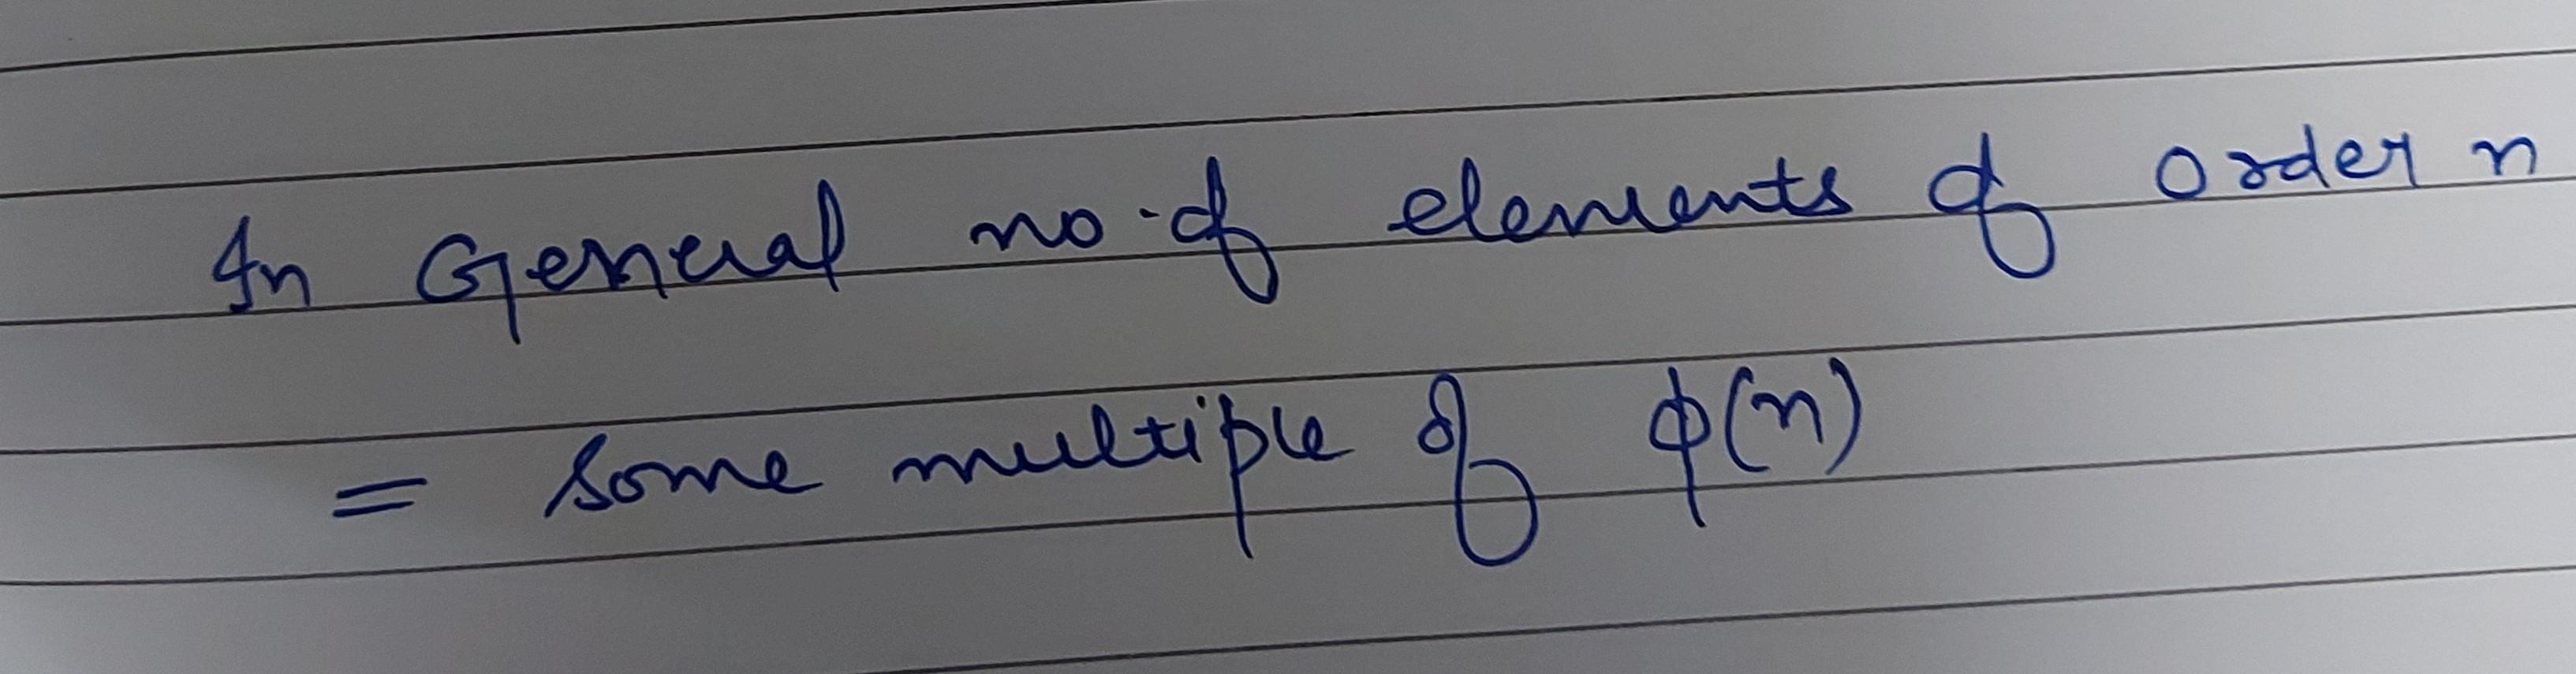 In General no. of elements of order n
= some multiple of ϕ(n)